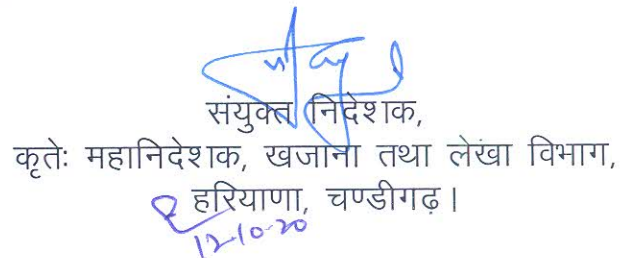 संयुक्त निदेशक,
कृतेः महानिदेशक, खजाना तथा लेखा विभाग,
हरियाणा, चण्डीगढ़।
12-10-20